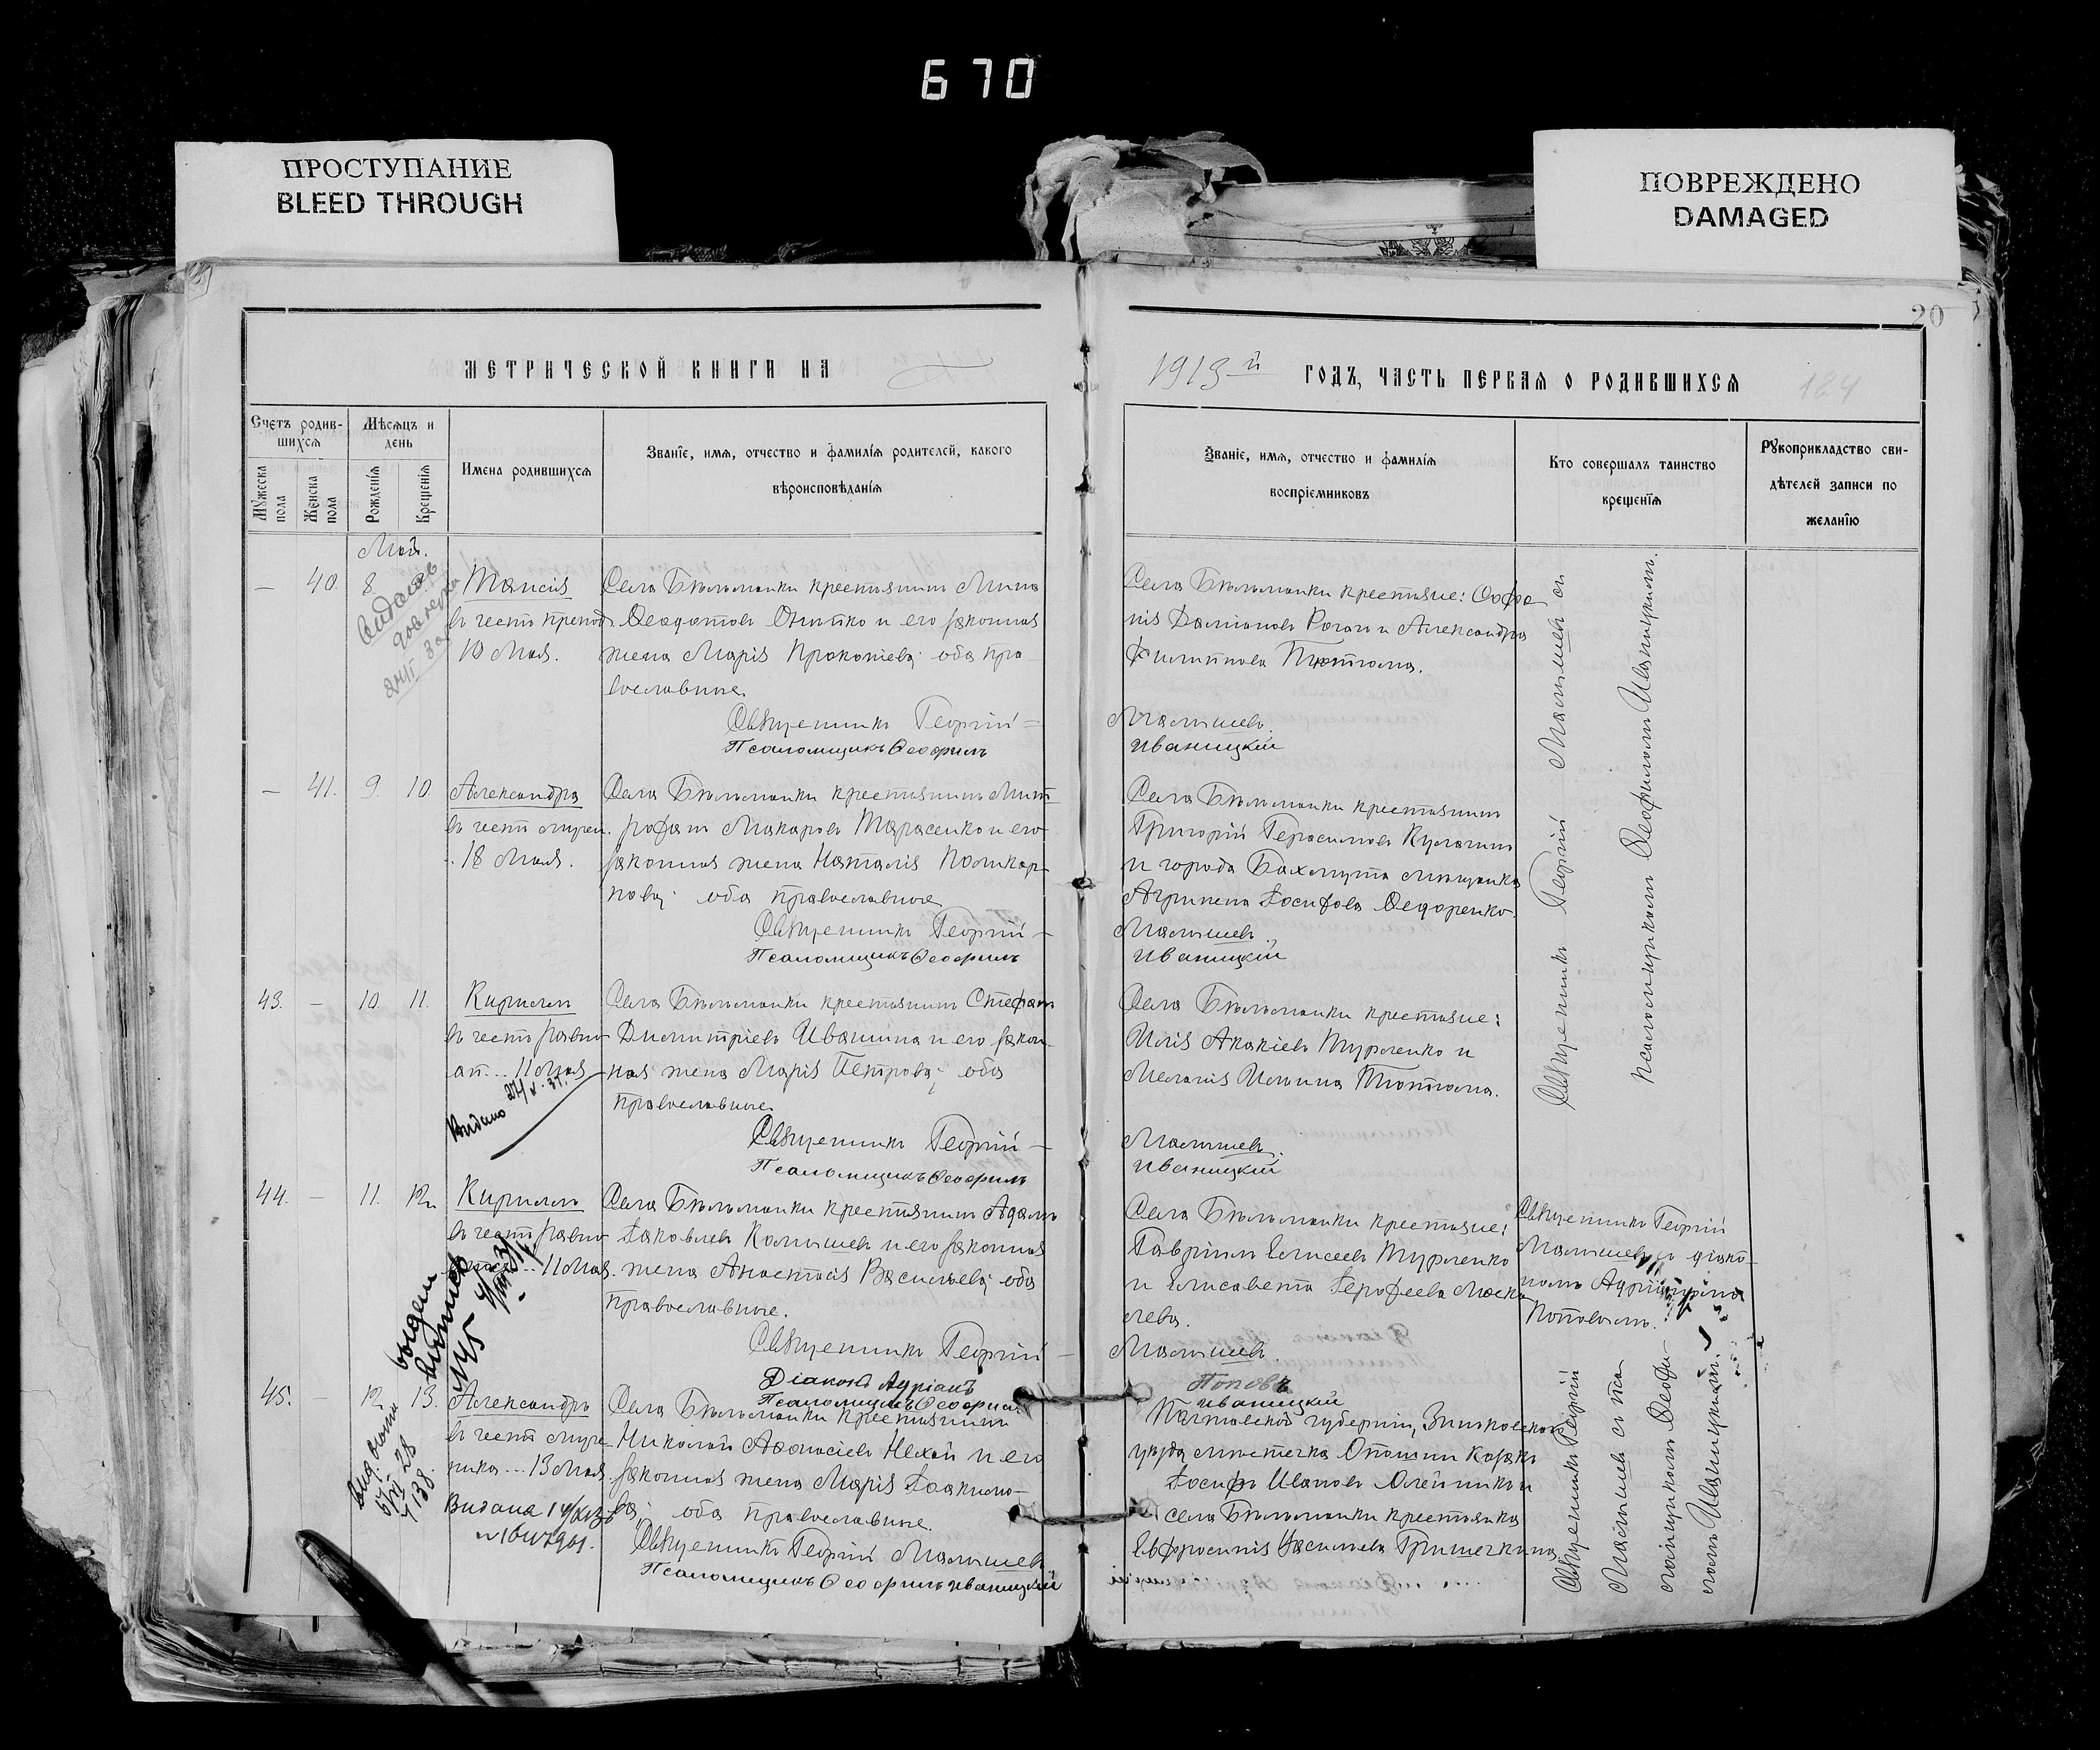 670
ПРОСТУПАНИЕ
BLEED THROUGH
ПОВРЕЖДЕНО
DAMAGED
20
МЕТРИЧЕСКОЙ КНИГИ НА
1913й ГОДЪ, ЧАСТЬ ПЕРВАЯ О РОДИВШИХСЯ
124
Счетъ родив-
шихся
Мѣсяцъ и
день
Мужеска
пола
Женска
пола
Рожденія
Крещенія
Имена родившихся
Званіе, имя, отчество и фамилія родителей, какого
вѣроисповѣданія
Званіе, имя, отчество и фамилія
воспріемниковъ
Кто совершалъ таинство
крещенія
Рукоприкладство сви-
дѣтелей записи по
желанію
Май.
— 40. 8
Таисія
въ честь препод.
10 Мая.
Села Бѣльманки крестьянинъ Мина
Ѳеодотовъ Онитко и его законная
жена Марія Прокопіева; оба пра-
вославные.
Священникъ Георгій
Псаломщикъ Ѳеофилъ
Села Бѣльманки крестьяне:
Даміановъ Роганъ и Александра
Филиппова
Малышевъ.
Иваницкій
— 41. 9. 10
Александра
въ честь мучен.
18 Мая.
Села Бѣльманки крестьянинъ Мит-
рофанъ Макаровъ Тарасенко и его
законная жена Наталія Поликар-
пова; оба православные
Священникъ Георгій
Псаломщикъ Ѳеофилъ
Села Бѣльманки крестьянинъ
Григорій Герасимовъ Кулагинъ
и города Бахмута мѣщанка
Агрипена Іосифова Ѳедоренко.
Малышевъ.
Иваницкій
43. — 10. 11.
Кириллъ
въ честь равно-
ап... 11 Мая
Видано 27/V.37.
Села Бѣльманки крестьянинъ Стефанъ
Димитріевъ Ивашина и его закон-
ная жена Марія Петрова; оба
православные.
Священникъ Георгій
Псаломщикъ Ѳеофилъ
Села Бѣльманки крестьяне:
Илія Акакіевъ Турленко и
Меланія Ильина
Малышевъ.
Иваницкій
Священникъ Георгій Малышевъ съ
псаломщикомъ Ѳеофиломъ Иваницкимъ.
44. — 11. 12
Кириллъ
въ честь равно-
11 Мая.
Села Бѣльманки крестьянинъ Адамъ
Іаковлевъ Колышевъ и его законная
жена Анастасія Васильева; оба
православные.
Священникъ Георгій
Діаконъ Адріанъ
Псаломщикъ Ѳеофилъ
Села Бѣльманки крестьяне:
Гавріилъ Елисеевъ Турленко
и Елисавета Іерофеева
лева.
Малышевъ.
Поповъ
Иваницкій
Священникъ Георгій
Малышевъ съ діако-
номъ
Поповымъ.
45. — 12 13.
Александръ
въ честь муче-
ника... 13 Мая.
Видана
Села Бѣльманки крестьянинъ
Николай Аѳанасіевъ Нехай и его
законная жена Марія Іоакимо-
ва; оба православные.
Священникъ Георгій Малышевъ
Псаломщикъ Ѳеофилъ Иваницкій
Полтавской губерніи, Зиньковскаго
уѣзда мѣстечка Опошни козакъ
Іосифъ Ивановъ Олейникъ и
села Бѣльманки крестьянка
Евфросинія Васильева Гришечкина
Священникъ Георгій
Малышевъ съ пса-
ломщикомъ Ѳеофи-
ломъ Иваницкимъ.